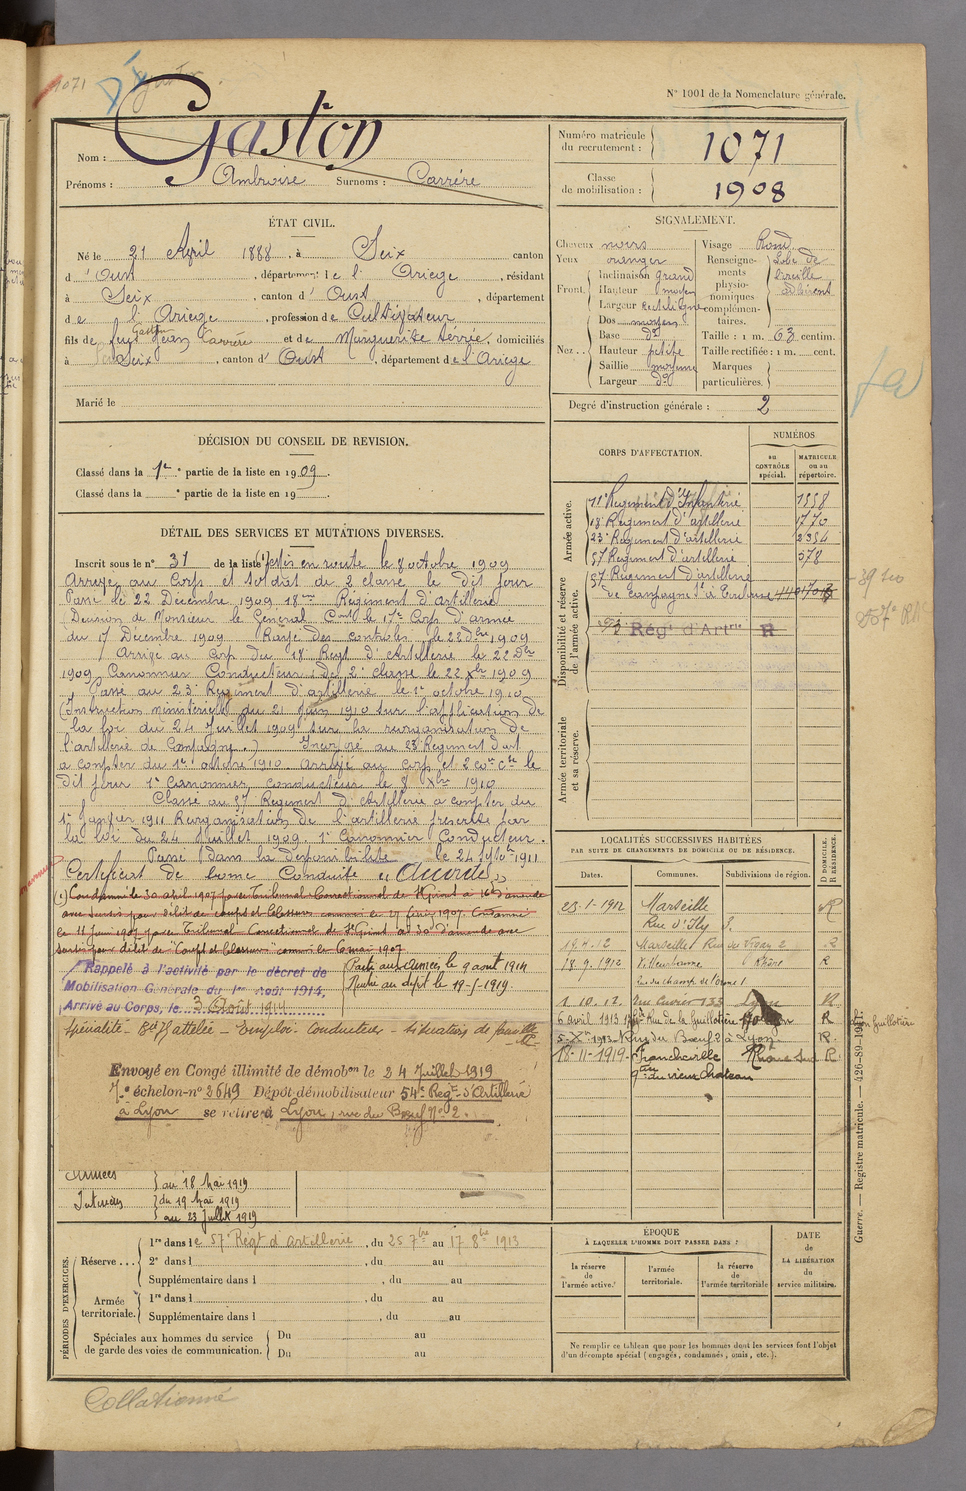 1071
N° 1001 de la Nomenclature générale.
Nom : Gaston
Prénoms : Ambroise Surnoms : Carrère
Numéro matricule du recrutement : 1071
Classe de mobilisation : 1908
ÉTAT CIVIL.
Né le 21 Avril 1888, à Seix canton
d'Oust, département de l'Ariège, résidant
à Seix, canton d'Oust, département
de l'Ariège, profession de Cultivateur
fils de feu Jean Gaston Carrère et de Marguerite Servié, domiciliés
à Seix, canton d'Oust, département de l'Ariège
Marié le
SIGNALEMENT.
Cheveux noirs
Yeux oranger
Front. Inclinaison grand
Hauteur moyen
Largeur rectiligne
Nez. Dos moyen
Base do
Hauteur petite
Saillie moyenne
Largeur do
Visage Rond
Renseignements physionomiques complémentaires. Lobe de l'oreille adhérent
Taille : 1 m. 63 centim.
Taille rectifiée : 1 m. cent.
Marques particulières.
Degré d'instruction générale : 2
DÉCISION DU CONSEIL DE REVISION.
Classé dans la 1re partie de la liste en 1909.
Classé dans la e partie de la liste en 19 .
DÉTAIL DES SERVICES ET MUTATIONS DIVERSES.
Inscrit sous le n° 31 de la liste
en route le 8 octobre 1909
Arrivé au Corps et soldat de 2 classe le dit jour
Passé le 22 Décembre 1909 18me Régiment d'Artillerie
(Décision de Monsieur le Général Cmt le 17e Corps d'armée
du 17 Décembre 1909 Rayé des controles le 22 dbre 1909
Arrivé au Corp du 18 Regt d'Artillerie le 22 Dbre
1909 Canonnier Conducteur de 2e classe le 22 Xbre 1909
Passé au 23 Régiment d'artillerie le 1er octobre 1910
(Instruction ministérielle du 21 juin 1910 sur l'application de
la loi du 24 Juillet 1909 sur la réorganisation de
l'artillerie de Campagne.) Incorporé au 23 Régiment d'art
a compter du 1er octobre 1910. Arrivé au corp et 2 con cte le
Dit jour 1er Canonnier conducteur le 8 Xbre 1910
Classé au 57 Régiment d'Artillerie a compter du
1er Janvier 1911 Réorganisation de l'artillerie prescrite par
la loi du 24 Juillet 1909. 1er Canonnier Conducteur.
Passé dans la disponibilité le 24 septbre 1911
Certificat de bonne Conduite "Accordé"
(1) Condamné le 30 avril 1907 par le Tribunal Correctionnel de St Girons à 16f d'amende
avec sursis pour délit de coups et blessures commis le 17 février 1907. Condamné
le 11 juin 1907 par le Tribunal Correctionnel de St Girons à 30f d'amende avec
sursis pour délit de "Coups et blessures" commis le 6 mai 1907
Rappelé à l'activité par le décret de
Mobilisation Générale du 1er Août 1914.
Arrivé au Corps, le 3 Août 1914
Parti aux armées le 9 aout 1914
Rentré au dépôt le 19-5-1919.
Spécialité - attelée - Emploi Conducteur - situation de famille
Envoyé en Congé illimité de démobon le 24 Juillet 1919
7e échelon - n° 2649 Dépôt démobilisateur 54e Regt d'Artillerie
à Lyon se retire à Lyon, rue du Bœuf N° 2.
Armées au 18 Mai 1919
Intérieur du 19 Mai 1919
au 23 Juillet 1919
CORPS D'AFFECTATION.
NUMÉROS
au CONTRÔLE spécial.
MATRICULE ou au répertoire.
Armée active.
11e Régiment d'Infanterie 1558
18e Régiment d'artillerie 1770
23e Régiment d'artillerie 2354
57 Régiment d'artillerie 578
Disponibilité et réserve de l'armée active.
57 Régiment d'artillerie
de Campagne
Régt d'Artie R
Armée territoriale et sa réserve.
LOCALITÉS SUCCESSIVES HABITÉES
PAR SUITE DE CHANGEMENTS DE DOMICILE OU DE RÉSIDENCE.
Dates. Communes. Subdivisions de région. D DOMICILE. R RÉSIDENCE.
23-1-1912 Marseille R
Rue d'Isly 8.
18.4.12 Marseille R
18.9.1912 Villeurbanne Rhône R
1.10.12. Rue Cuvier 133 Lyon R
6 avril 1913 Rue de la Guillotière 170 Lyon R Lyon Guillotière
5-Xbre-1913 Rue du Bœuf 2 à Lyon R.
18-11-1919 Francheville Rhône Sud R.
qtier du vieux Chateau
PÉRIODES D'EXERCICES.
Réserve... 1re dans le 57e Régt d'Artillerie, du 25 7bre au 17 8bre 1913
2e dans l , du au
Supplémentaire dans l , du au
Armée territoriale. 1re dans l , du au
Supplémentaire dans l , du au
Spéciales aux hommes du service de garde des voies de communication. Du au
Du au
ÉPOQUE
À LAQUELLE L'HOMME DOIT PASSER DANS :
la réserve de l'armée active.
l'armée territoriale.
la réserve de l'armée territoriale
DATE de LA LIBÉRATION du service militaire.
Ne remplir ce tableau que pour les hommes dont les services font l'objet
d'un décompte spécial (engagés, condamnés, omis, etc.).
Guerre. — Registre matricule. — 426-89-1917.
Collationné